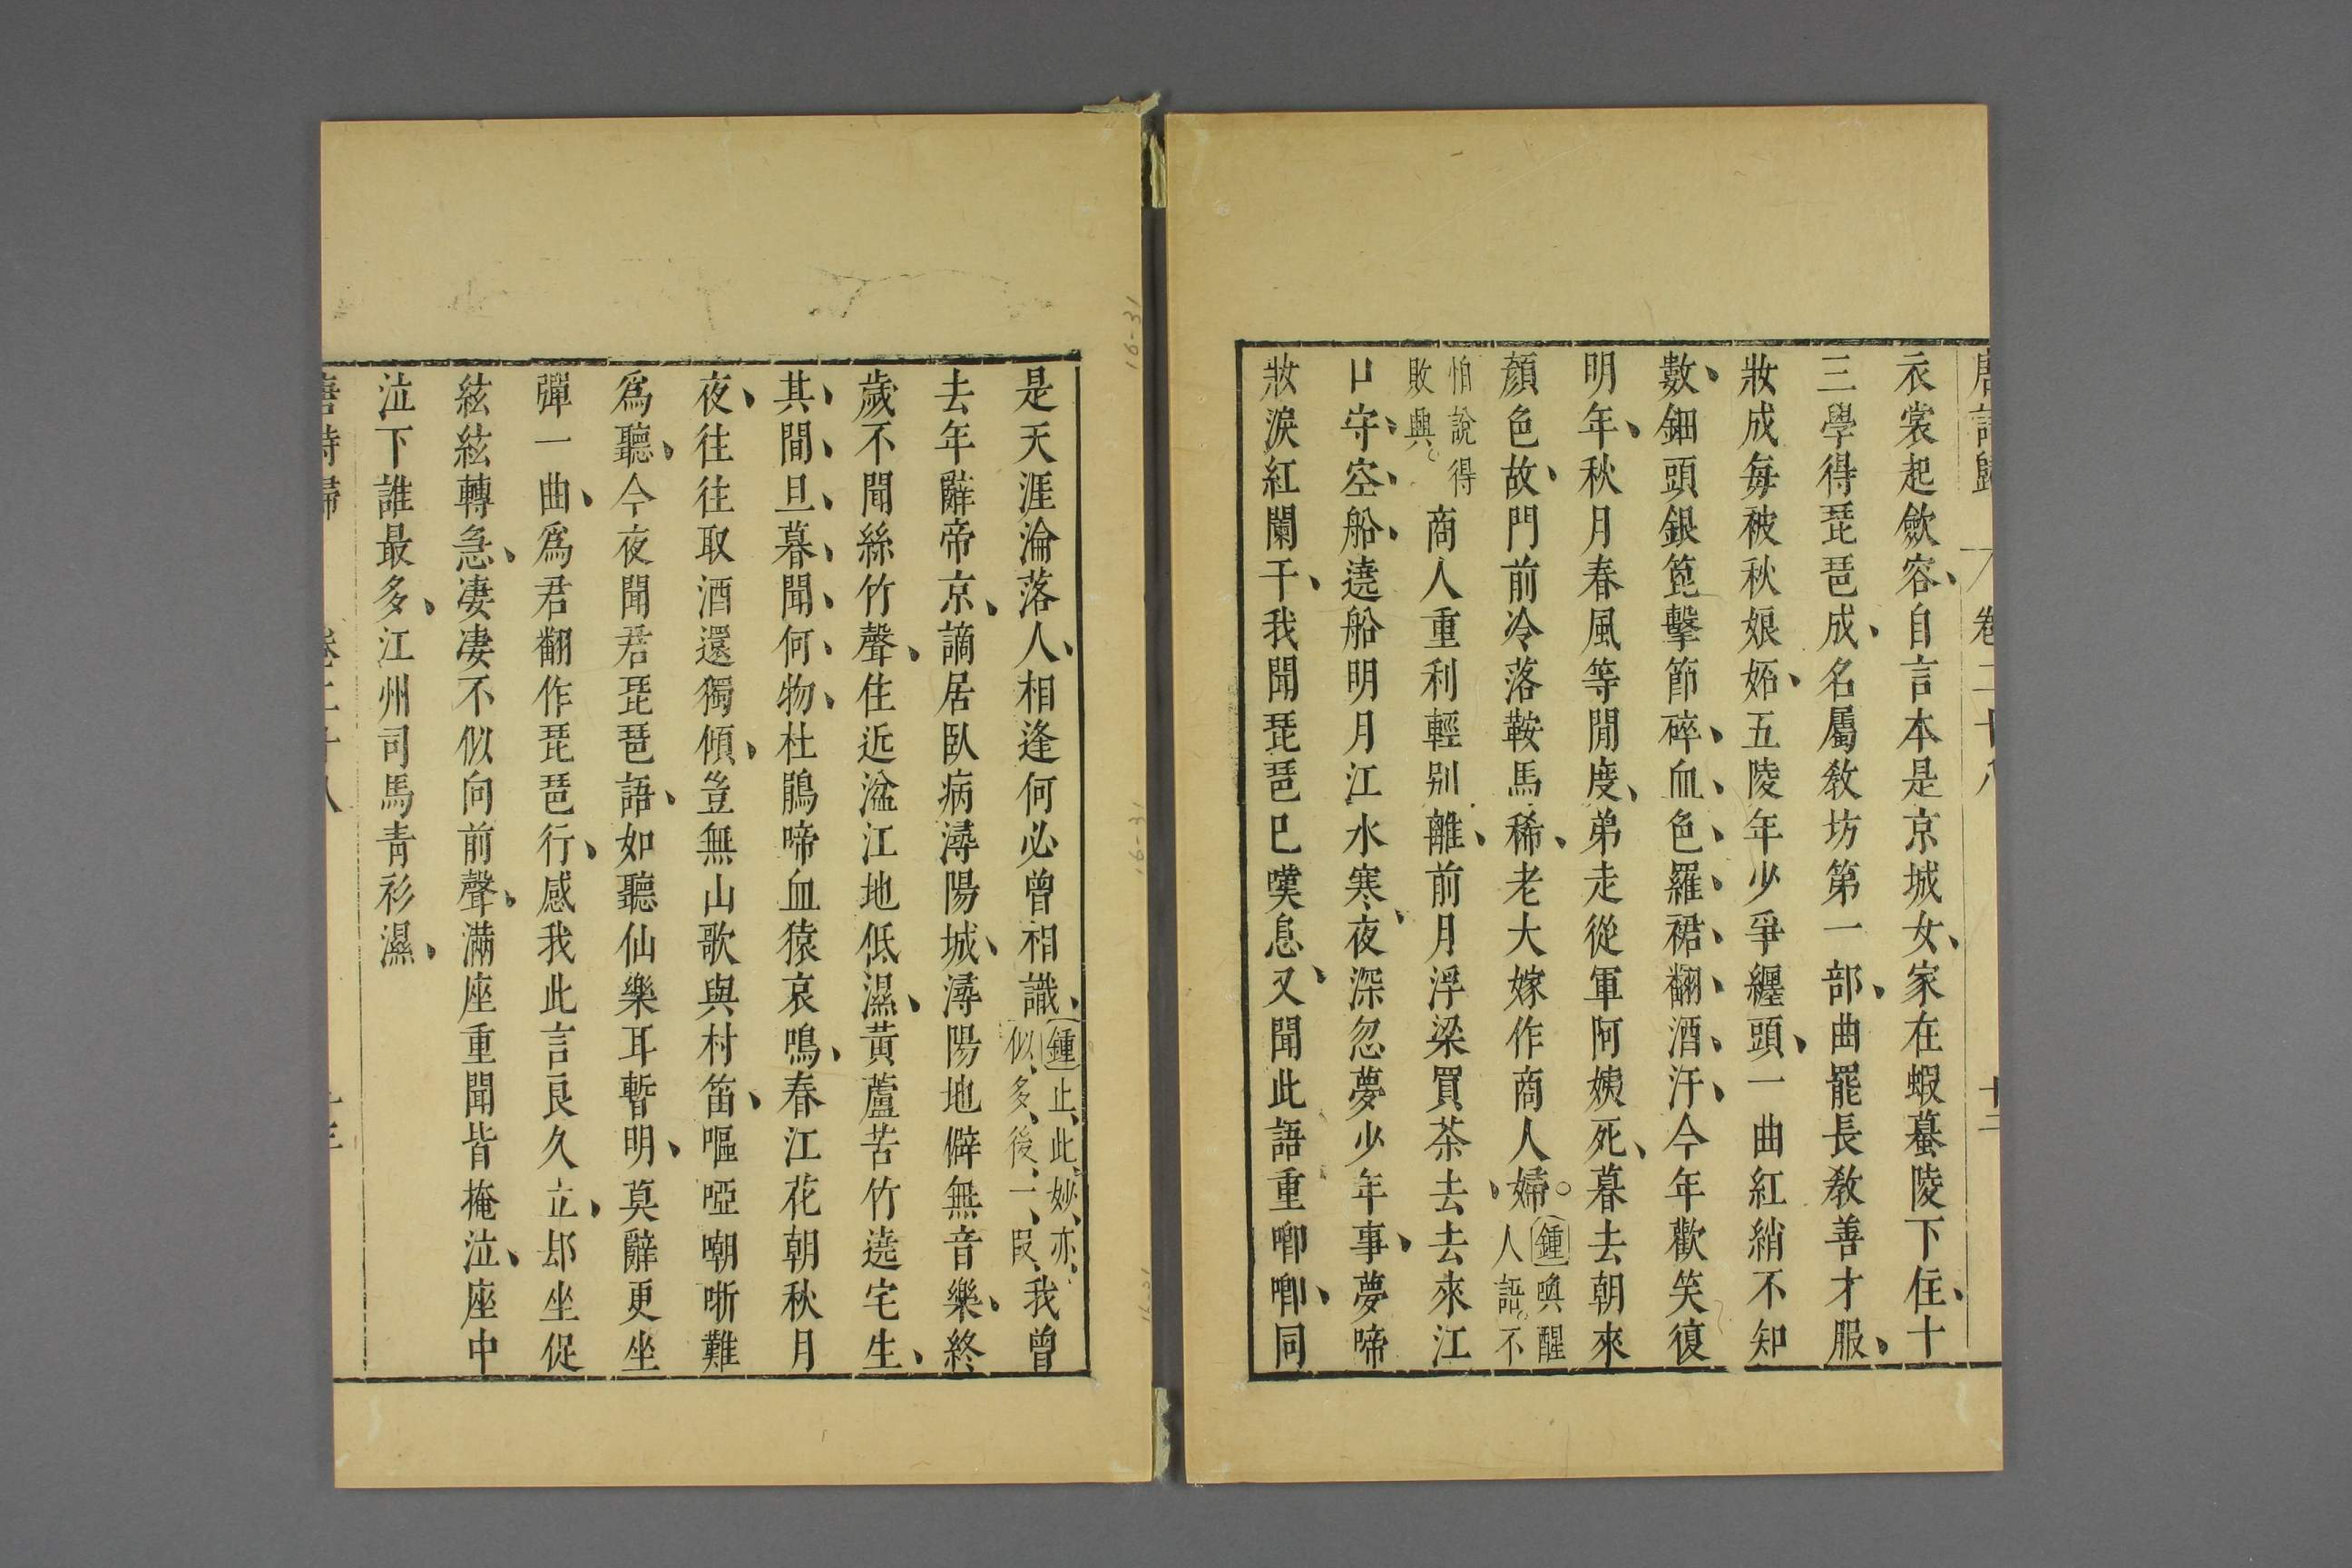 唐詩歸　卷二十八　十二
衣裳起歛容、自言本是京城女、家在蝦蟇陵下住、十
三學得琵琶成、名屬敎坊第一部、曲罷長敎善才服、
妝成每被秋娘妬、五陵年少爭纏頭、一曲紅綃不知
數、鈿頭銀箆擊節碎、血、色、羅、裙、翻、酒、汗、今年歡笑復
明年、秋月春風等閒度、弟走從軍阿姨死、暮去朝來
顏色故、門前冷落鞍馬稀、老大嫁作商人婦。
鍾喚醒
人語。不
怕說得
敗興。
商人重利輕别離、前月浮梁買茶去、去來江
口守、空、船、遶船明月江水寒、夜深忽夢少年事、夢啼
妝淚紅闌干、我聞琵琶已嘆息、又聞此語重喞喞、同
是天涯淪落人、相逢何必曾相識、
鍾止、此、妙、亦、
似、多、後、一、叚、
我曾
去年辭帝京、謫居臥病潯陽城、潯陽地僻無音樂、終
歲不聞絲竹聲、住近湓江地低濕、黃蘆苦竹遶宅生、
其、間、旦、暮、聞、何、物、杜鵑啼血猿哀鳴、春江花朝秋月
夜、往往取酒還獨傾、豈無山歌與村笛、嘔啞嘲哳難
爲聽、今夜聞君琵琶語、如聽仙樂耳暫明、莫辭更坐
彈一曲、爲君翻作琵琶行、感我此言良久立、却坐促
絃絃轉急、凄凄不似向前聲、滿座重聞皆掩泣、座中
泣下誰最多、江州司馬青衫濕、
唐詩歸　卷二十八　十三
16-31
16-31
16-31